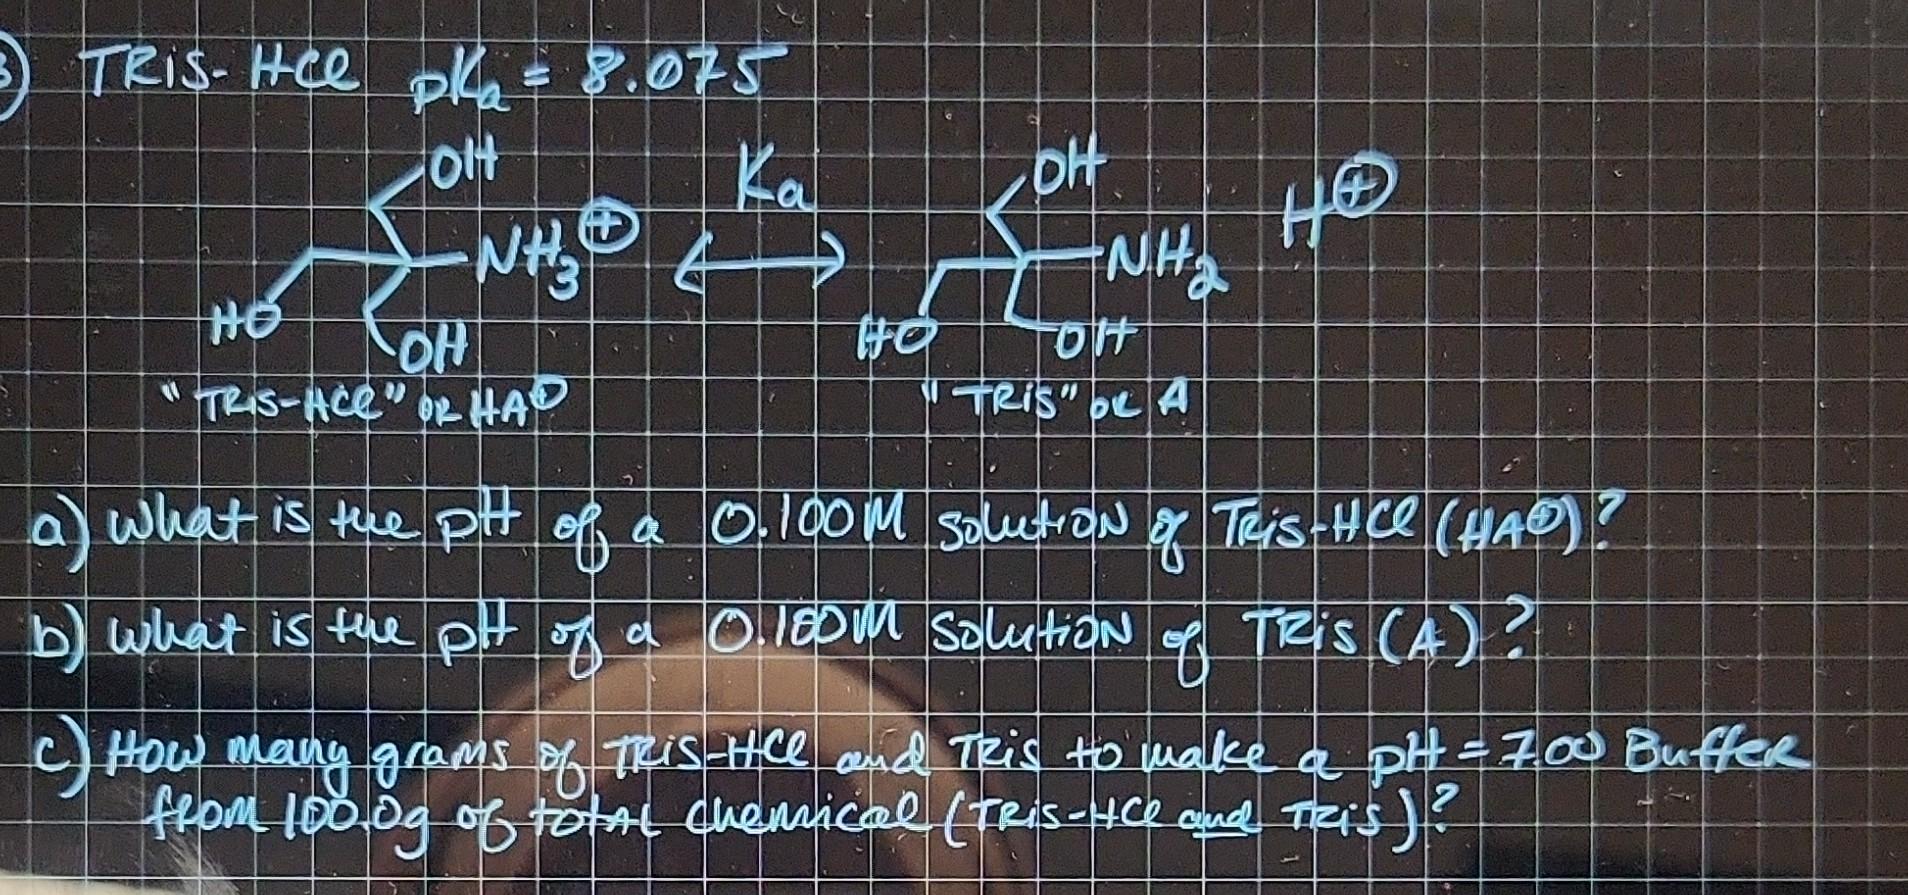 3) TRIS-HCl pKa = 8.075
OH OH
Ka H⊕
NH3⊕ ⟷ NH2
HO OH HO OH
"TRIS-HCl" OR HA⊕ "TRIS" OR A
a) What is the pH of a 0.100M solution of TRIS-HCl (HA⊕)?
b) What is the pH of a 0.100M solution of TRIS (A)?
c) How many grams of TRIS-HCl and TRIS to make a pH = 7.00 Buffer
from 100.0g of total chemical (TRIS-HCl and TRIS)?